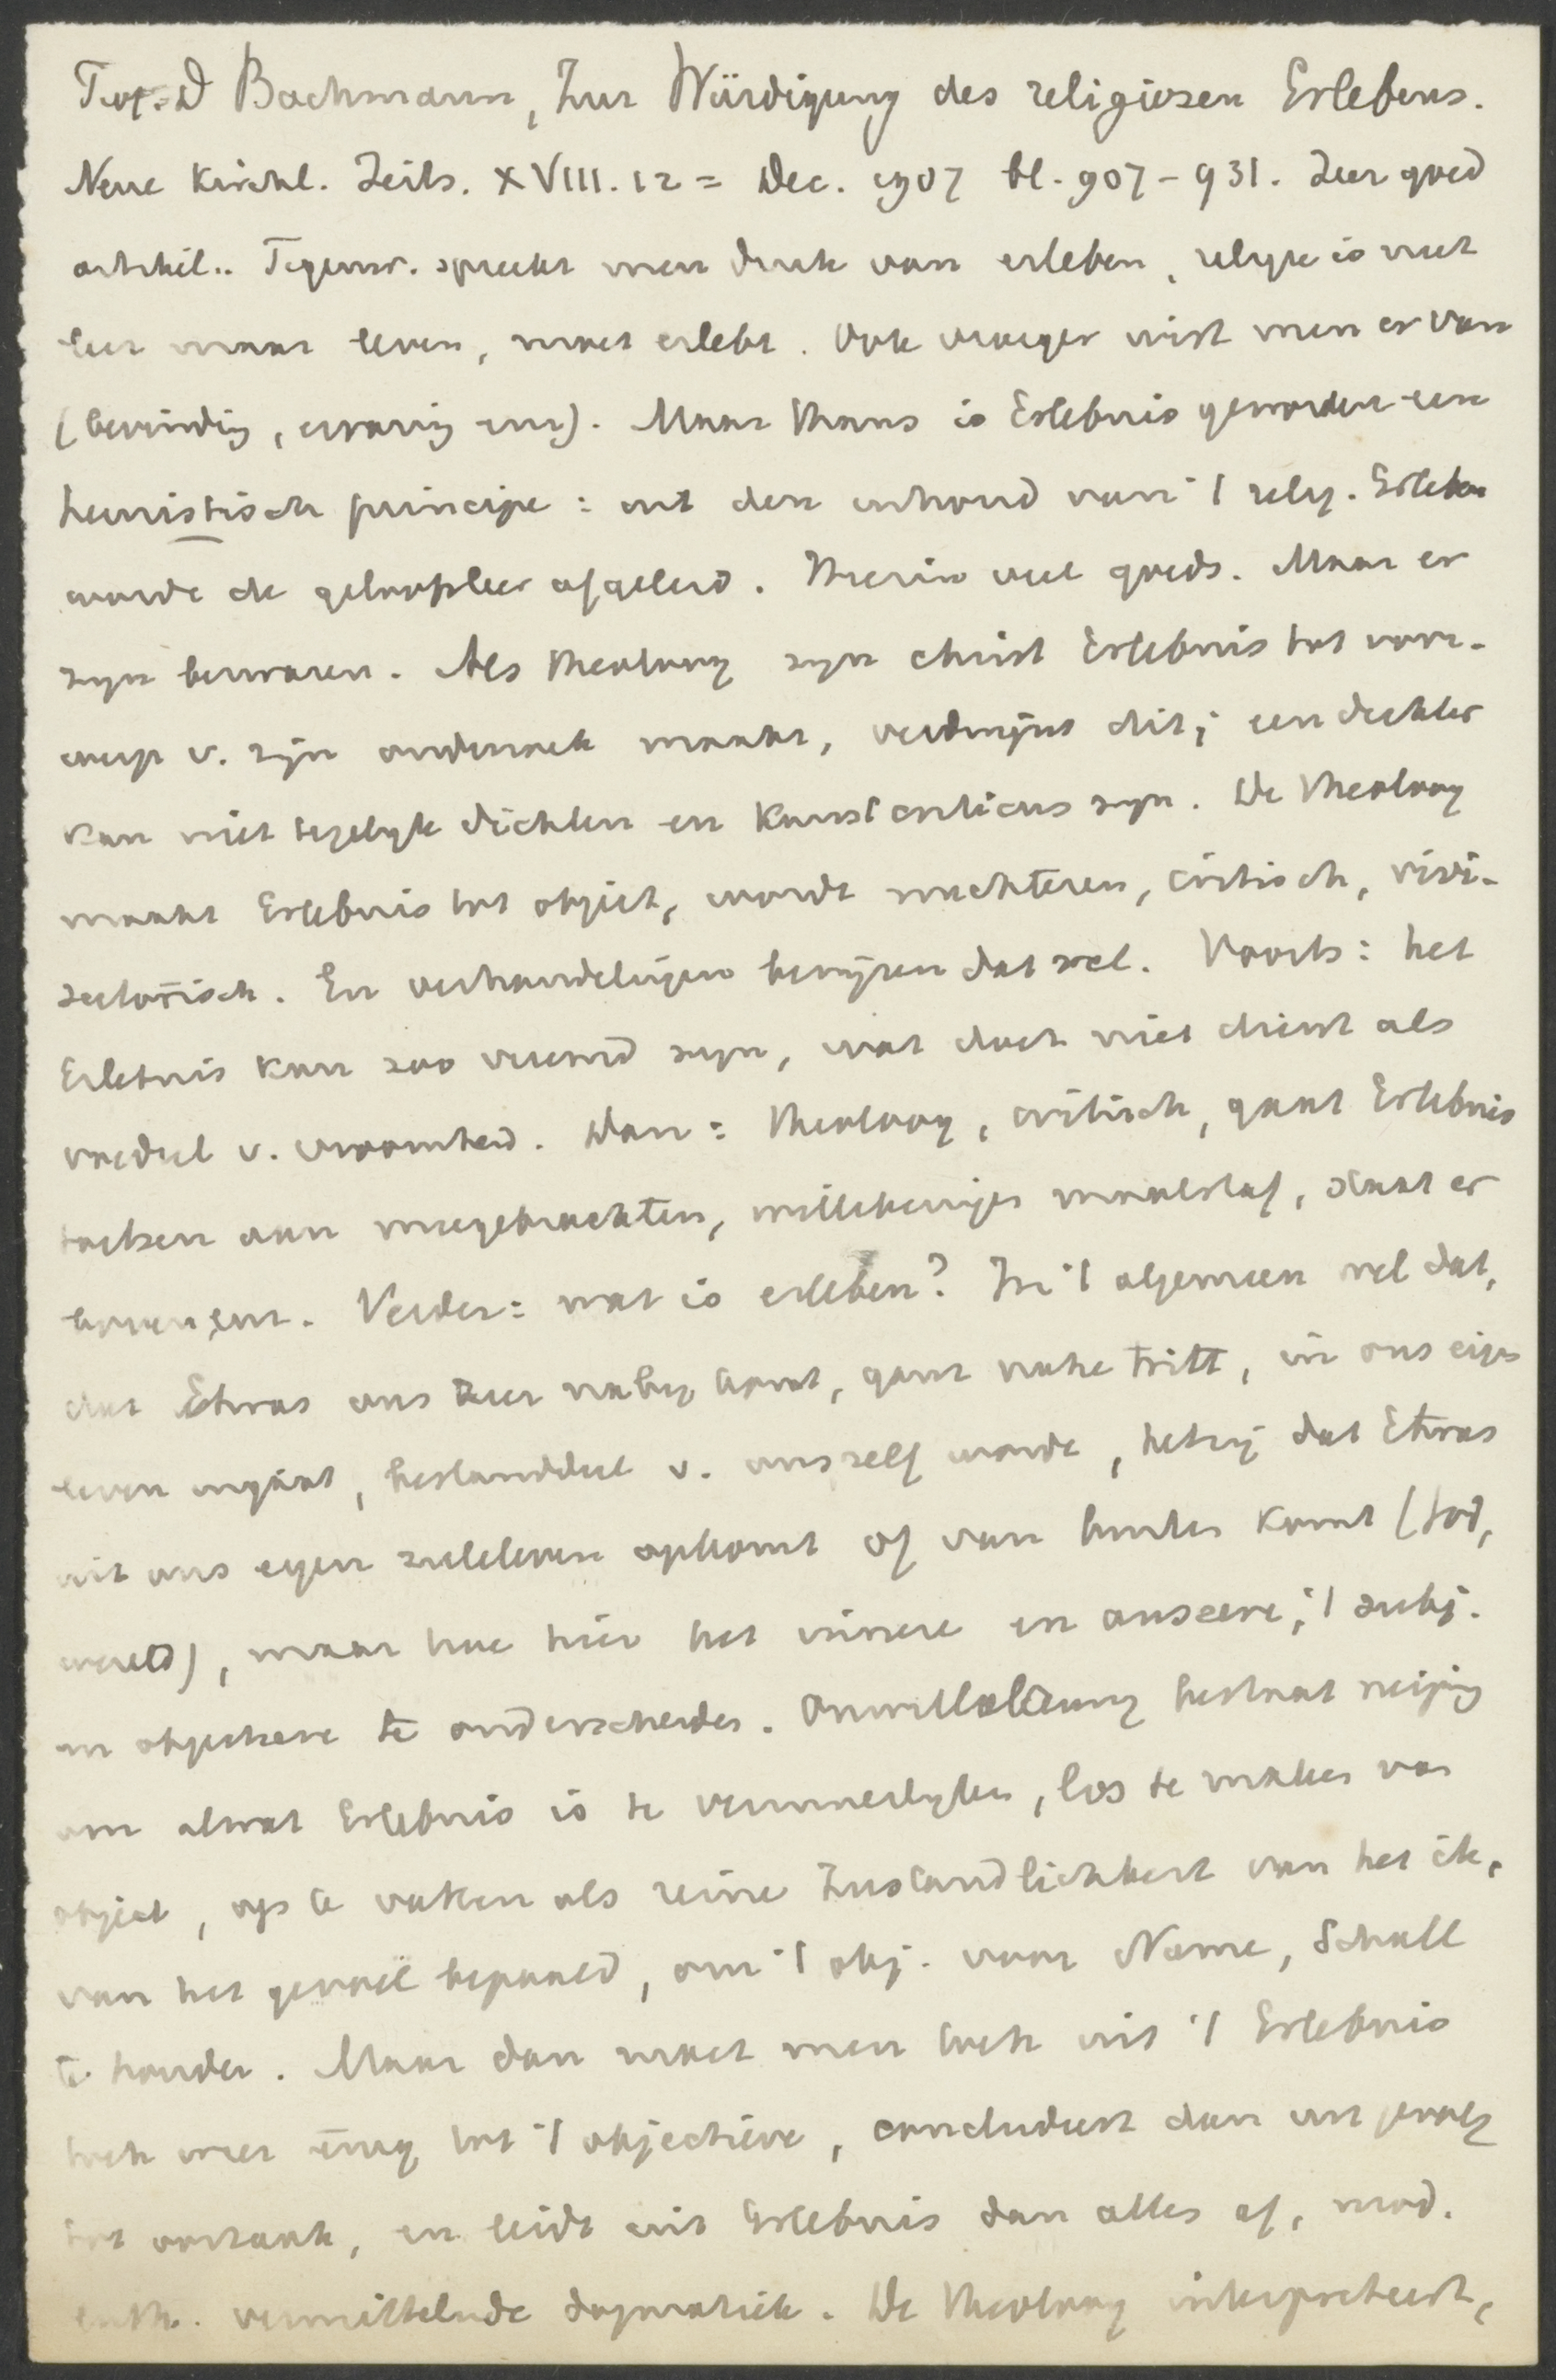 Prof. D Bachmann, Zur Würdigung des religiosen Erlebens.
Neue Kirchl. Zeits. XVIII. 12 = Dec. 1907 bl. 907-931. Zeer goed
artikel.. Tegenw. spreekt men druk van erleben, religie is niet
leer maar leven, moet erlebt. Ook vroeger wist men er van
(bevinding, ervaring enz). Maar thans is Erlebnis geworden een
heuristisch principe: uit den inhoud van 't relig. Erleben
wordt de geloofsleer afgeleid. Hierin veel goeds. Maar er
zijn bezwaren. Als theoloog zijn christ Erlebnis tot voor-
werp v. zijn onderzoek maakt, verdwijnt dit; een dichter
kan niet tegelijk dichten en kunstcriticus zijn. De theoloog
maakt Erlebnis tot object, wordt nuchteren, critisch, vivi-
sectorisch. En verhandelingen bewijzen dat wel. Voorts: het
Erlebnis kan zoo vreemd zijn, wat doch niet dienst als
voedsel v. vroomheid. Dan: theoloog, critisch, gaat Erlebnis
toetsen aan meegebrachten, willekeurigen maatstaf, staat er
boven enz. Verder: wat is erleben? In 't algemeen wel dat,
dat Etwas ons zeer nabij komt, ganz nahe tritt, in ons eigen
leven ingaat, bestanddeel v. onszelf wordt, hetzij dat Etwas
uit ons eigen zieleleven opkomt of van buiten komt (God,
wereld), maar hoe hier het innere en aussere, 't subj.
en objectieve te onderscheiden. Onwillekeurig bestaat neiging
om alwat Erlebnis is te verinnerlijken, los te maken van
object, op te vatten als reine Zuständlichkeit van het ik,
van het gevoel bepaald, om 't obj. voor Name, Schall
te houden. Maar dan moet men toch uit 't Erlebnis
toch weer terug tot 't objectieve, concludeert dan uit gevolg
tot oorzaak, en leidt uit Erlebnis dan alles af, mod.
vermittelnde dogmatiek. De theoloog interpreteert,